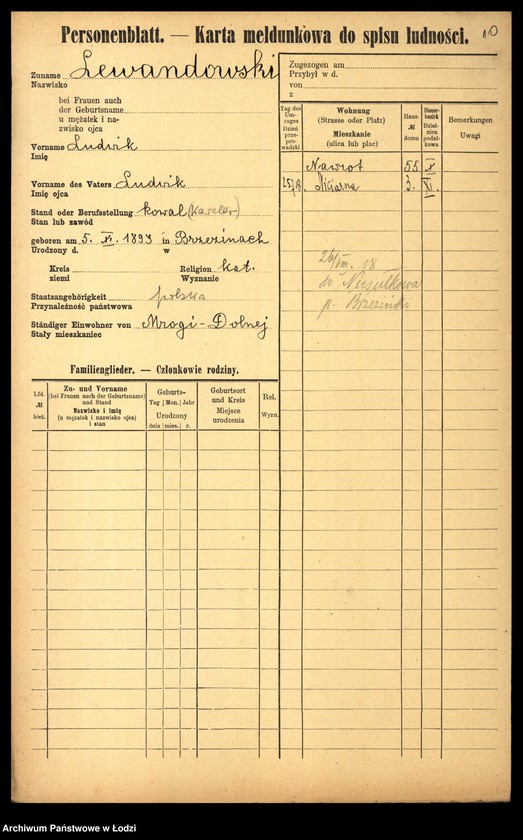 Personenblatt. — Karta meldunkowa do spisu ludności.
10
Zuname Lewandowski
Nazwisko
bei Frauen auch
der Geburtsname
u mężatek i na-
zwisko ojca
Vorname Ludwik
Imię
Vorname des Vaters Ludwik
Imię ojca
Stand oder Berufsstellung kowal (kawaler)
Stan lub zawód
geboren am 5. XI. 1893 in Brzezinach
Urodzony d. w
Kreis Religion kat.
ziemi Wyznanie
Staatsangehörigkeit polska
Przynależność państwowa
Ständiger Einwohner von Mrogi-Dolnej
Stały mieszkaniec
Familienglieder. — Członkowie rodziny.
Lfd. № bież.
Zu- und Vorname
(bei Frauen auch der Geburtsname)
und Stand
Nazwisko i imię
(u mężatek i nazwisko ojca)
i stan
Geburts-
Tag Mon. Jahr
Urodzony
dnia mies. r.
Geburtsort
und Kreis
Miejsce
urodzenia
Rel.
Wyzn.
Zugezogen am
Przybył w d.
von
z
Tag des Um-zuges Dzień prze-pro-wadzki
Wohnung
(Strasse oder Platz)
Mieszkanie
(ulica lub plac)
Haus-
№
domu
Steuer-
bezirk
Dziel-
nica
podat-
kowa
Bemerkungen
Uwagi
Nawrot 55 X
Niciarna 3. XI.
26/VIII. 18
do Niesułkowa
p. Brzeziński
Archiwum Państwowe w Łodzi